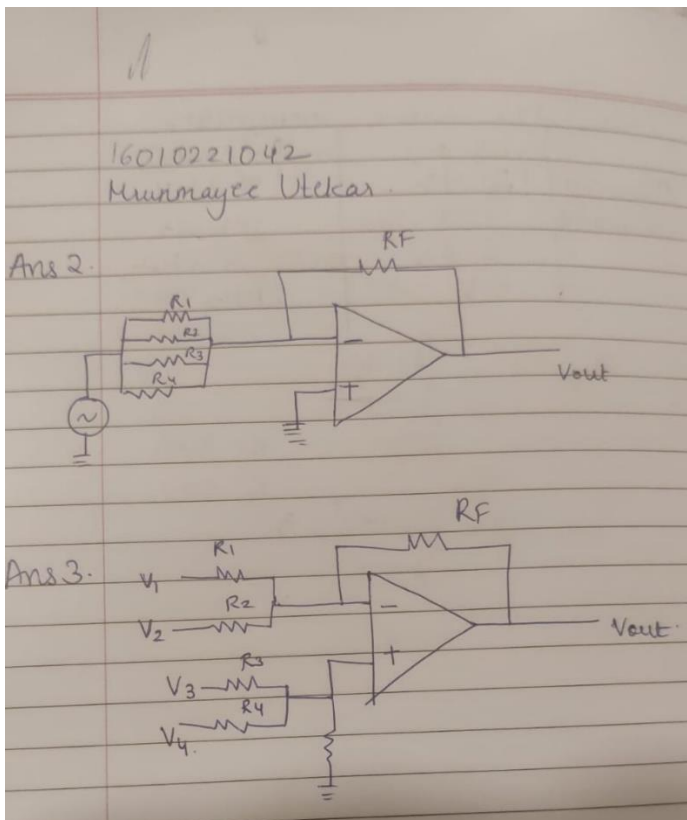 16010221042
Mrunmayee Utekar.
Ans 2.
RF
R1
R2
R3
R4
-
+
~
Vout
Ans 3.
RF
R1
V1
R2
V2
-
+
Vout.
R3
V3
R4
V4.